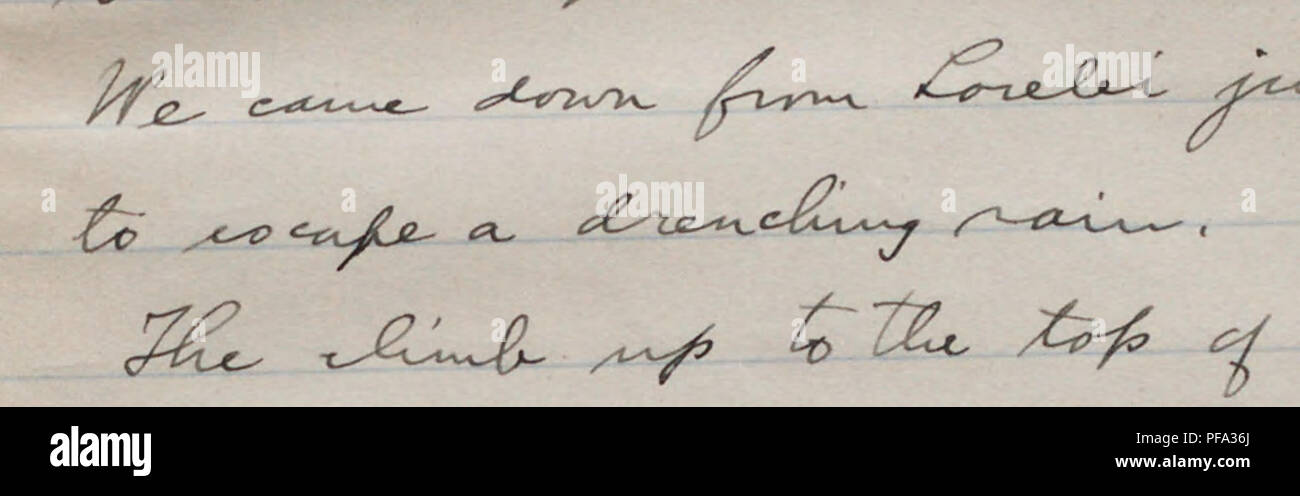 We came down from Lorelei
to escape a drenching rain.
The climb up to the top of
alamy
PFA36J
www.alamy.com